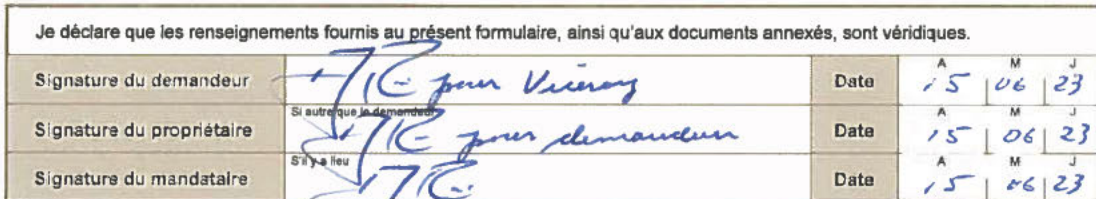 Je déclare que les renseignements fournis au présent formulaire, ainsi qu'aux documents annexés, sont véridiques.
Signature du demandeur pour Viceroy Date A M J 15 06 23
Signature du propriétaire Si autre que le demandeur pour demandeur Date A M J 15 06 23
Signature du mandataire S'il y a lieu Date A M J 15 06 23